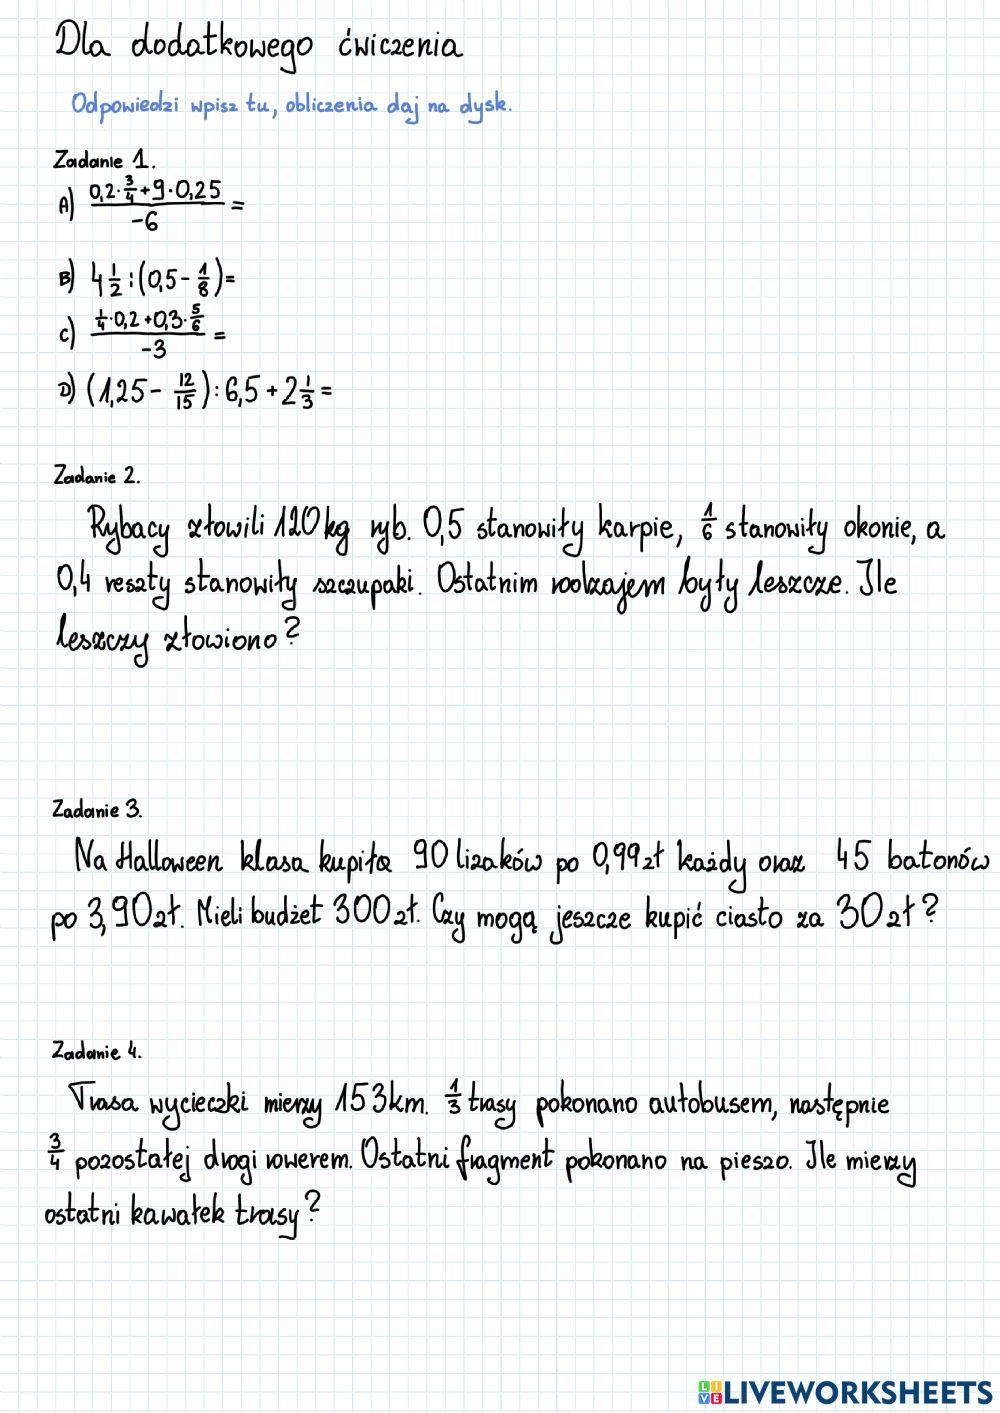 Dla dodatkowego ćwiczenia
Odpowiedzi wpisz tu, obliczenia daj na dysk.
Zadanie 1.
A) (0,2·3/4+9·0,25)/(-6) =
B) 4 1/2 : (0,5 - 1/8) =
C) (1/4·0,2+0,3·5/6)/(-3) =
D) (1,25 - 12/15) : 6,5 + 2 1/3 =
Zadanie 2.
Rybacy złowili 120kg ryb. 0,5 stanowiły karpie, 1/6 stanowiły okonie, a
0,4 reszty stanowiły szczupaki. Ostatnim rodzajem były leszcze. Ile
leszczy złowiono?
Zadanie 3.
Na Halloween klasa kupiła 90 lizaków po 0,99zł każdy oraz 45 batonów
po 3,90zł. Mieli budżet 300zł. Czy mogą jeszcze kupić ciasto za 30zł?
Zadanie 4.
Trasa wycieczki mierzy 153km. 1/3 trasy pokonano autobusem, następnie
3/4 pozostałej drogi rowerem. Ostatni fragment pokonano na pieszo. Ile mierzy
ostatni kawałek trasy?
LIVEWORKSHEETS